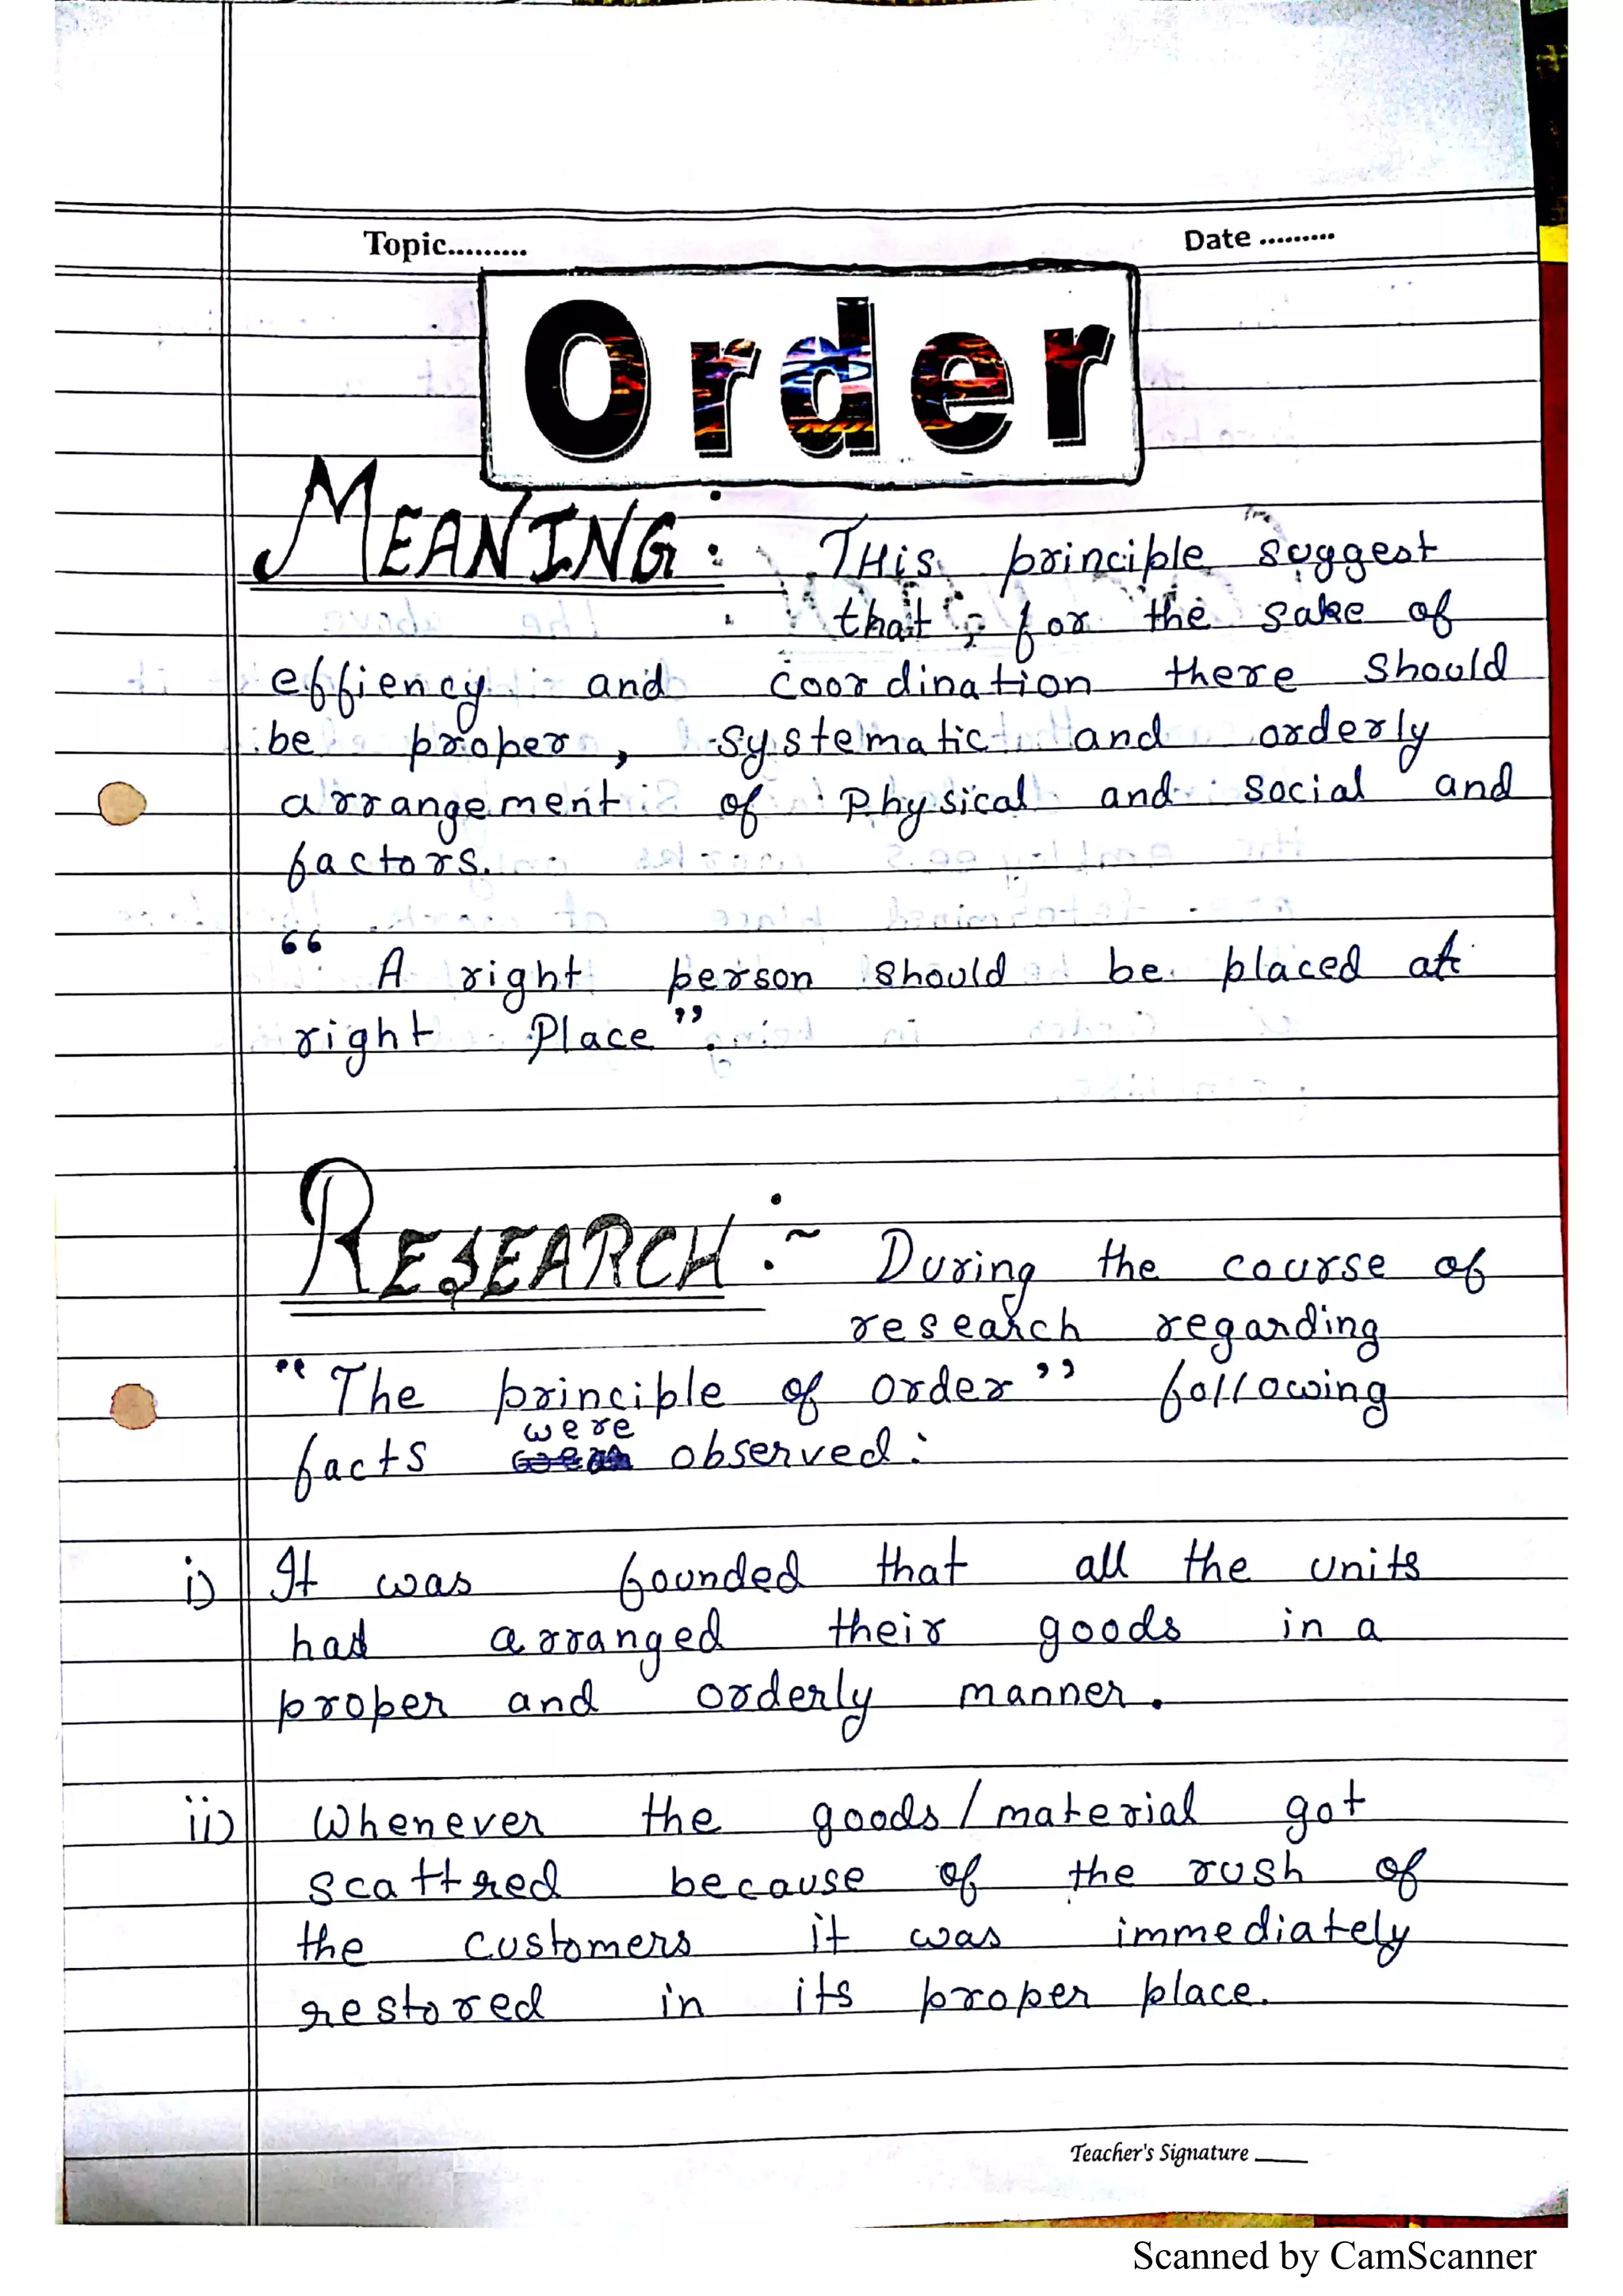 Topic.......... Date .........
Order
MEANING: THis principle suggest
that, for the sake of
effiency and coordination there should
be proper, systematic and orderly
arrangement of Physical and social and
factors.
“ A right person should be placed at
right Place”.
RESEARCH:- During the course of
research regarding
“The principle of order” following
were
facts observed:
i) It was founded that all the units
had arranged their goods in a
proper and orderly manner.
ii) Whenever the goods/material got
scattred because of the rush of
the customers it was immediately
restored in its proper place.
Teacher's Signature ____
Scanned by CamScanner